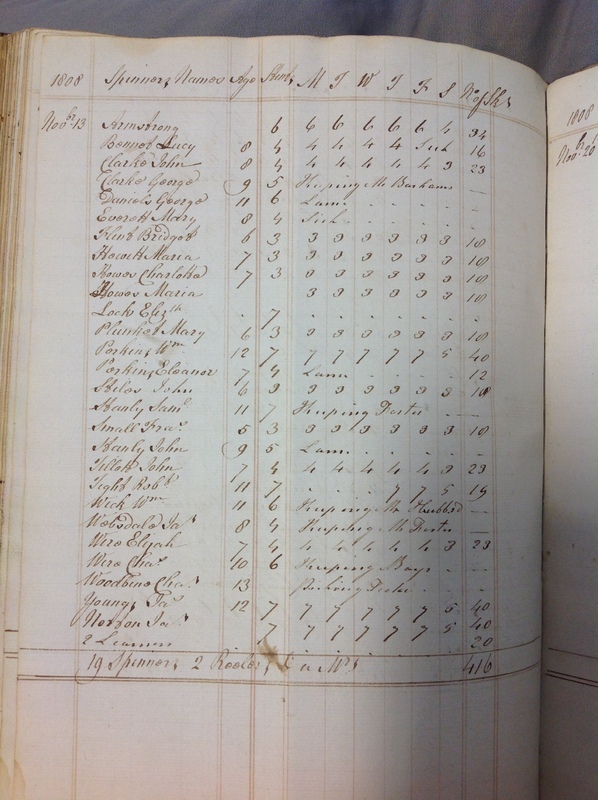 1808 Spinners Names Age Stint M T W T F S No of Sks
Novbr 13 Armstrong 6 6 6 6 6 6 4 34
Bennet Lucy 8 4 4 4 4 4 Sick 16
Clarke John 8 4 4 4 4 4 4 3 23
Clarke George 9 5 Keeping Mr Barhams —
Daniels George 11 6 Lame - - - - -
Everett Mary 8 4 Sick - - - - -
Flint Bridget 6 3 3 3 3 3 3 3 18
Howett Maria 7 3 3 3 3 3 3 3 18
Howes Charlotte 7 3 3 3 3 3 3 3 18
Howes Maria 3 3 3 3 3 3 18
Lock Elizth - 7 - - - - - - -
Plunket Mary 6 3 3 3 3 3 3 3 18
Perkins Wm 12 7 7 7 7 7 7 5 40
Perkins Eleanor 7 4 Lame - - - - 12
Stiles John 6 3 3 3 3 3 3 3 18
Stanly Saml 11 7 Keeping - -
Small Fras 5 3 3 3 3 3 3 3 18
Stanly John 9 5 Lame - - - - -
Tillott John 7 4 4 4 4 4 4 3 23
Tight Robt 11 7 - - - 7 7 5 19
Wick Wm 11 6 Keeping Mr Hubbard —
Websdale Jas 8 4 Keeping Mr —
Wire Elijah 7 4 4 4 4 4 4 3 23
Wire Chas 10 6 Keeping Boys - -
Woodbine Chas 13 - - -
Youngs Jas 12 7 7 7 7 7 7 5 40
Norton Jas 7 7 7 7 7 7 5 40
2 Learners 20
19 Spinners 2 Reelers 416